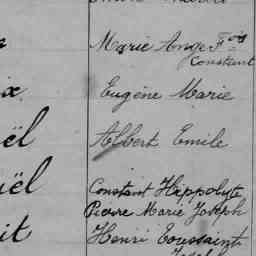 Marie Ange Fois
Constant
x Eugène Marie
ël Albert Emile
iël Constant Hippolyte
Pierre Marie Joseph
it Henri Toussaint